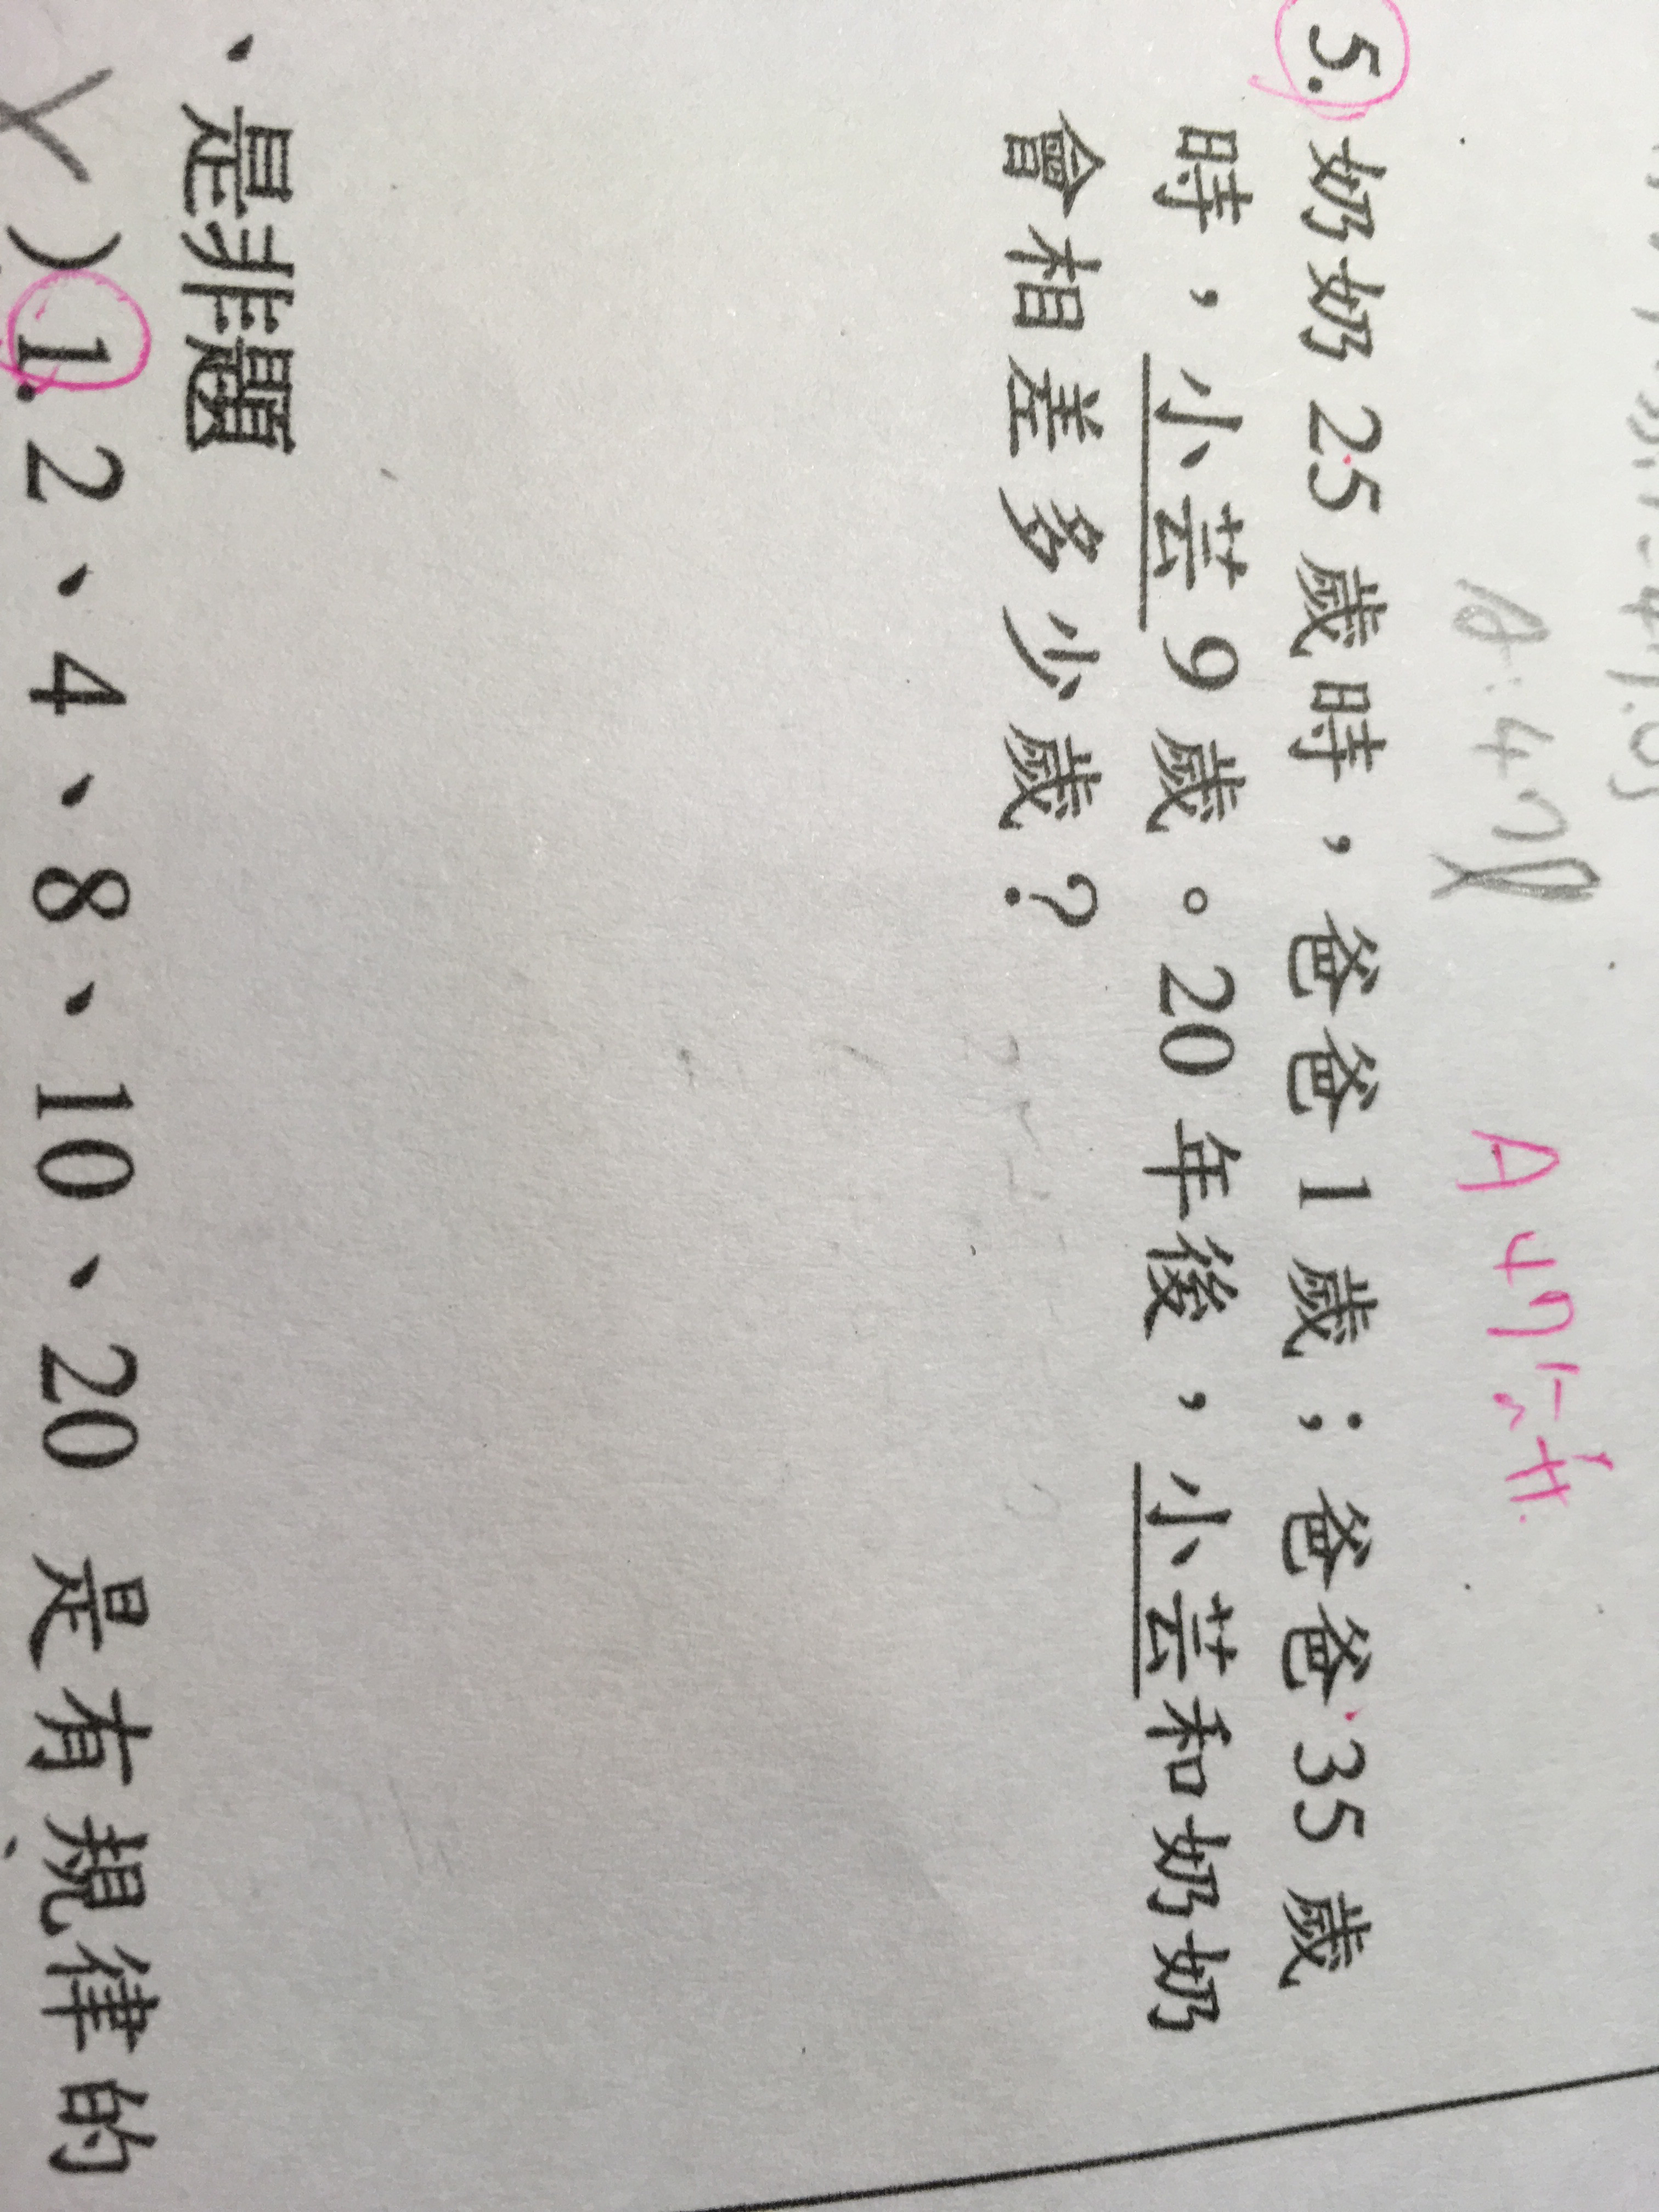 A 47
5. 奶奶 25 歲時，爸爸 1 歲；爸爸 35 歲
時，小芸 9 歲。20 年後，小芸和奶奶
會相差多少歲？
、是非題
）1. 2、4、8、10、20 是有規律的